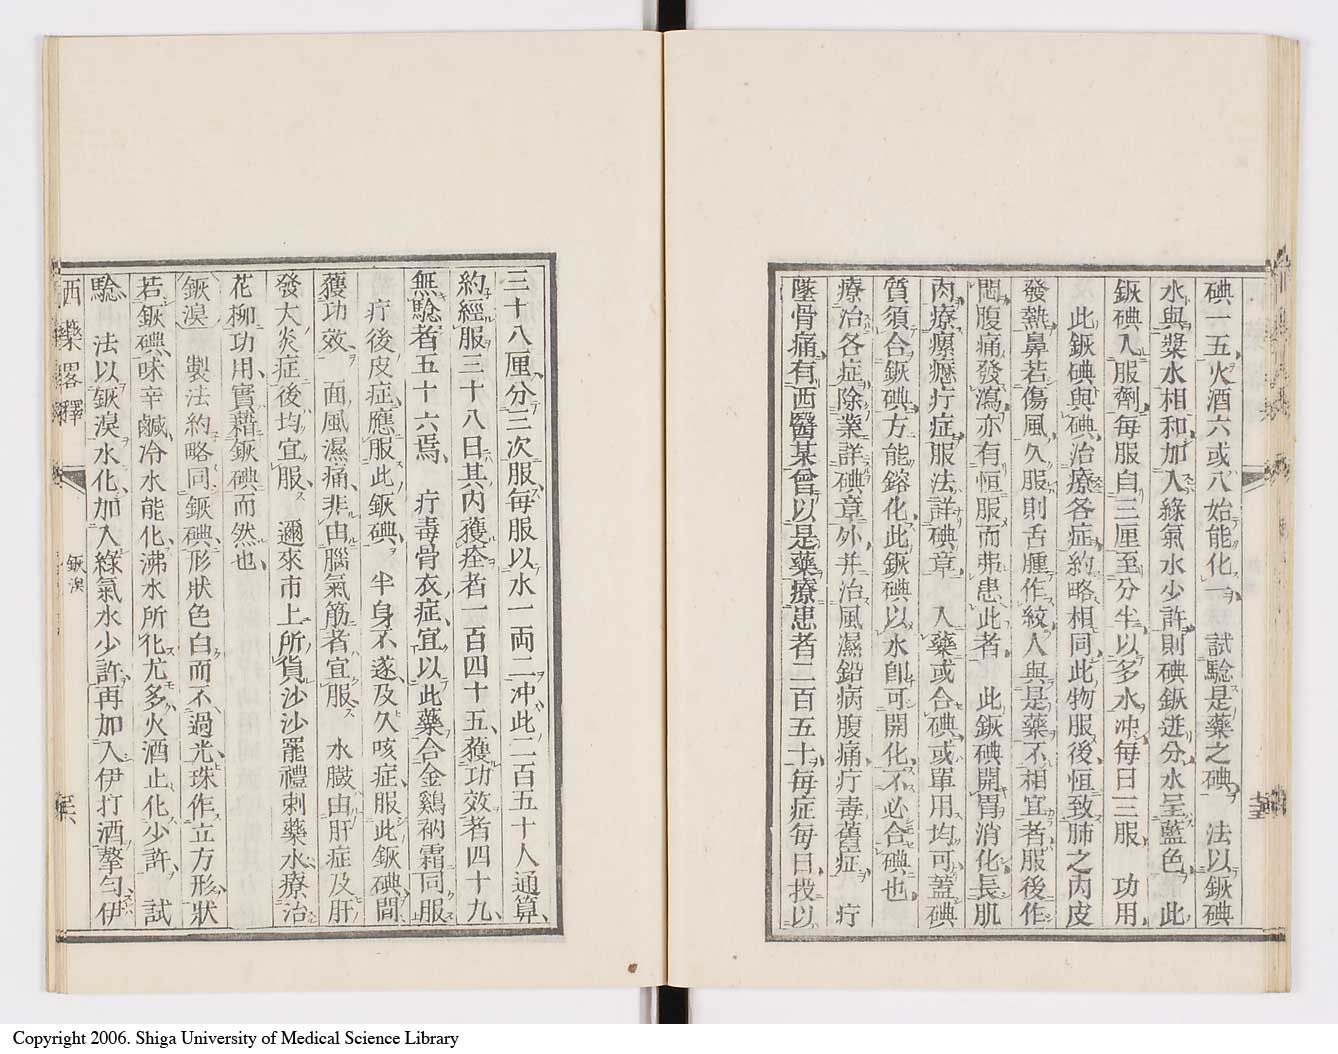 碘一五火酒六或八始能化一　試騐是藥之碘　法以鉙碘
水與漿水相和加入綠氣水少許則碘鉙迸分水呈藍色　此
鉙碘入服劑每服自三厘至分半以多水冲每日三服　功用
此鉙碘與碘治療各症約略相同此物服後恒致肺之內皮
發熱鼻若傷風久服則舌腫作絞人與是藥不相宜者服後作
悶腹痛發瀉亦有恒服而弗患此者　此鉙碘開胃消化長肌
肉療瘰癧疔症服法詳碘章　入藥或合碘或單用均可蓋碘
質須合鉙碘方能鎔化此鉙碘以水卽可開化不必合碘也
療治各症除業詳碘章外并治風濕鉛病腹痛疔毒舊症　疔
墜骨痛有西醫某曾以是藥療患者二百五十每症每日投以
三十八厘分三次服每服以水一両二冲此二百五十人通算
約經服三十八日其內獲痊者一百四十五獲功效者四十九
無騐者五十六焉　疔毒骨衣症宜以此藥合金鷄衲霜同服
疔後皮症應服此鉙碘　半身不遂及久咳症服此鉙碘間
獲功效　面風濕痛非由腦氣筋者宜服　水臌由肝症及肝
發大炎症後均宜服　邇來市上所貨沙沙罷禮刺藥水療治
花柳功用實藉鉙碘而然也
鉙湨　製法約略同鉙碘形狀色白而不過光珠作立方形狀
若鉙碘味辛鹹冷水能化沸水所化尤多火酒止化少許　試
騐　法以鉙湨水化加入綠氣水少許再加入伊打酒擎勻伊
西藥畧釋
鉙湨